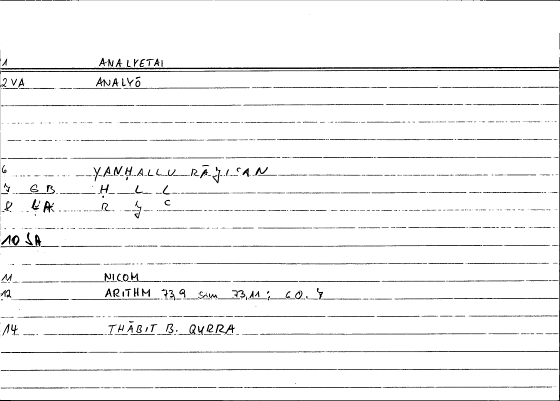 1 ANALYETAI
2 VA ANALYŌ
6 YANḤALLU RĀǧIʿAN
7 GB Ḥ L L
8 R ǧ ʿ
10 SA
11 NICOM
12 ARITHM 73,9 sim 73,11; 60.7
14 THĀBIT B. QURRA